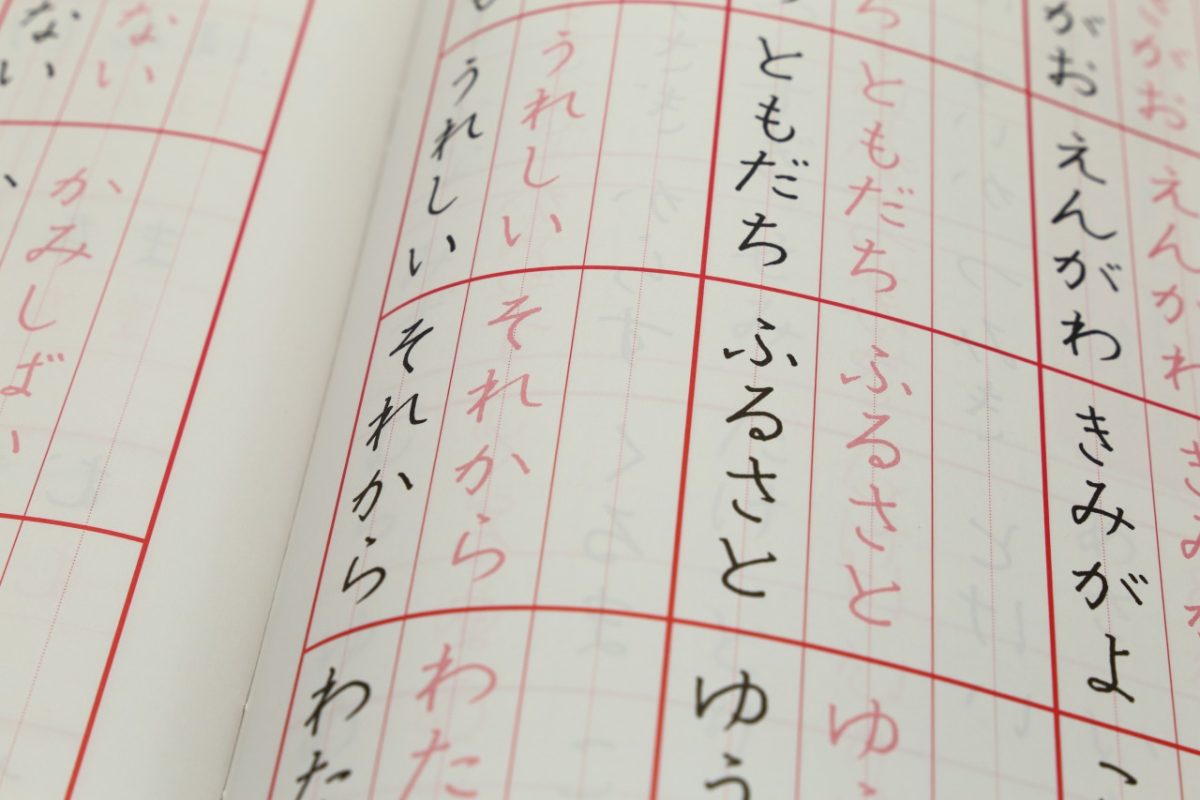 がお
えん
がお
えんがわ
きみがよ
ち
ともだち
ふるさと
ゆ
ともだち
ふるさと
ゆう
うれしい
それから
わた
うれしい
それから
わた
ない
かみしばい
ない